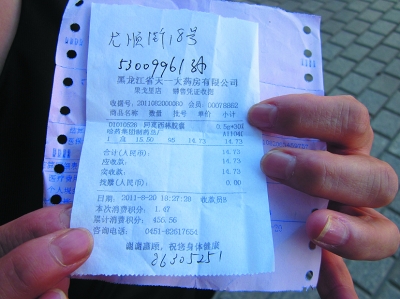 尤顺街18号
53009961
黑龙江省天一大药房有限公司
果戈里店 销售凭证收据
会员 00078862
商品名称 数量 批号 单价 小计
01010526 阿莫西林胶囊 0.5g*30
哈药集团制药总厂
1 盒 14.73 14.73
合计(人民币): 14.73
应收款: 14.73
实收款: 14.73
找赎(人民币): 0.00
日期:2011-8-20 10:27:20 收款员8
本次消费积分: 1.47
累计消费积分: 456.56
咨询电话: 0451-82617654
谢谢惠顾,祝您身体健康
86305251